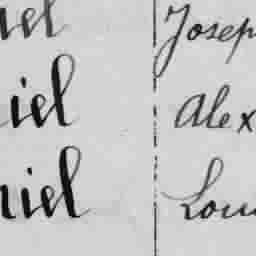 iel Joseph
iel Alex
niel Lou